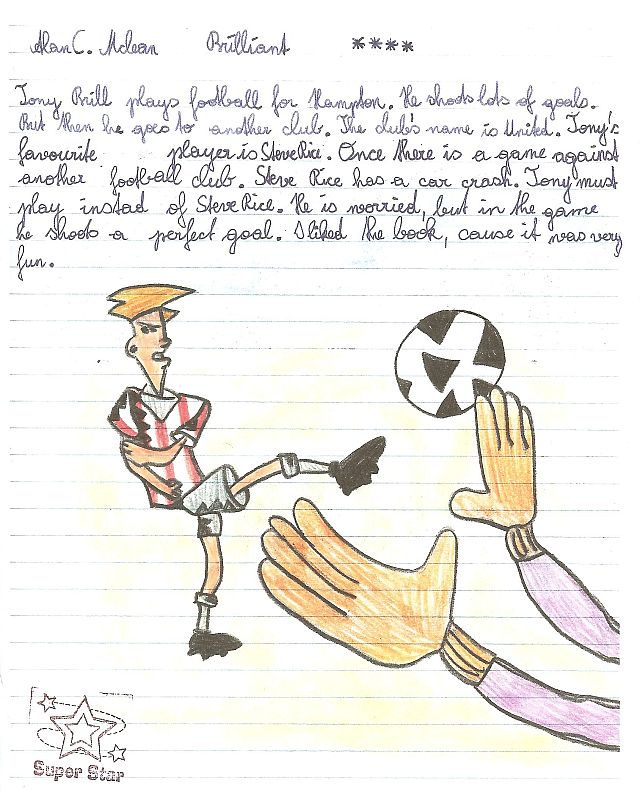 Alan C. Mclean Brilliant ****
Tony Brill plays football for Hampton. He shoots lots of goals.
But then he goes to another club. The club's name is United. Tony's
favourite player is Steve Rice. Once there is a game against
another football club. Steve Rice has a car crash. Tony must
play instad of Steve Rice. He is worried, but in the game
he shoots a perfect goal. I liked the book, cause it was very
fun.
Super Star